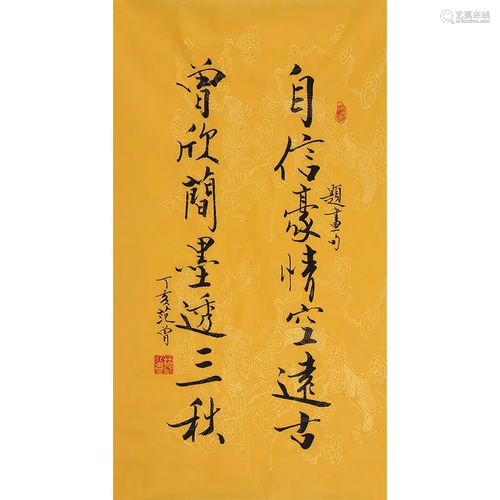 自信豪情空遠古
題畫句
曾欣簡墨透三秋
丁亥范曾
艺狐在线